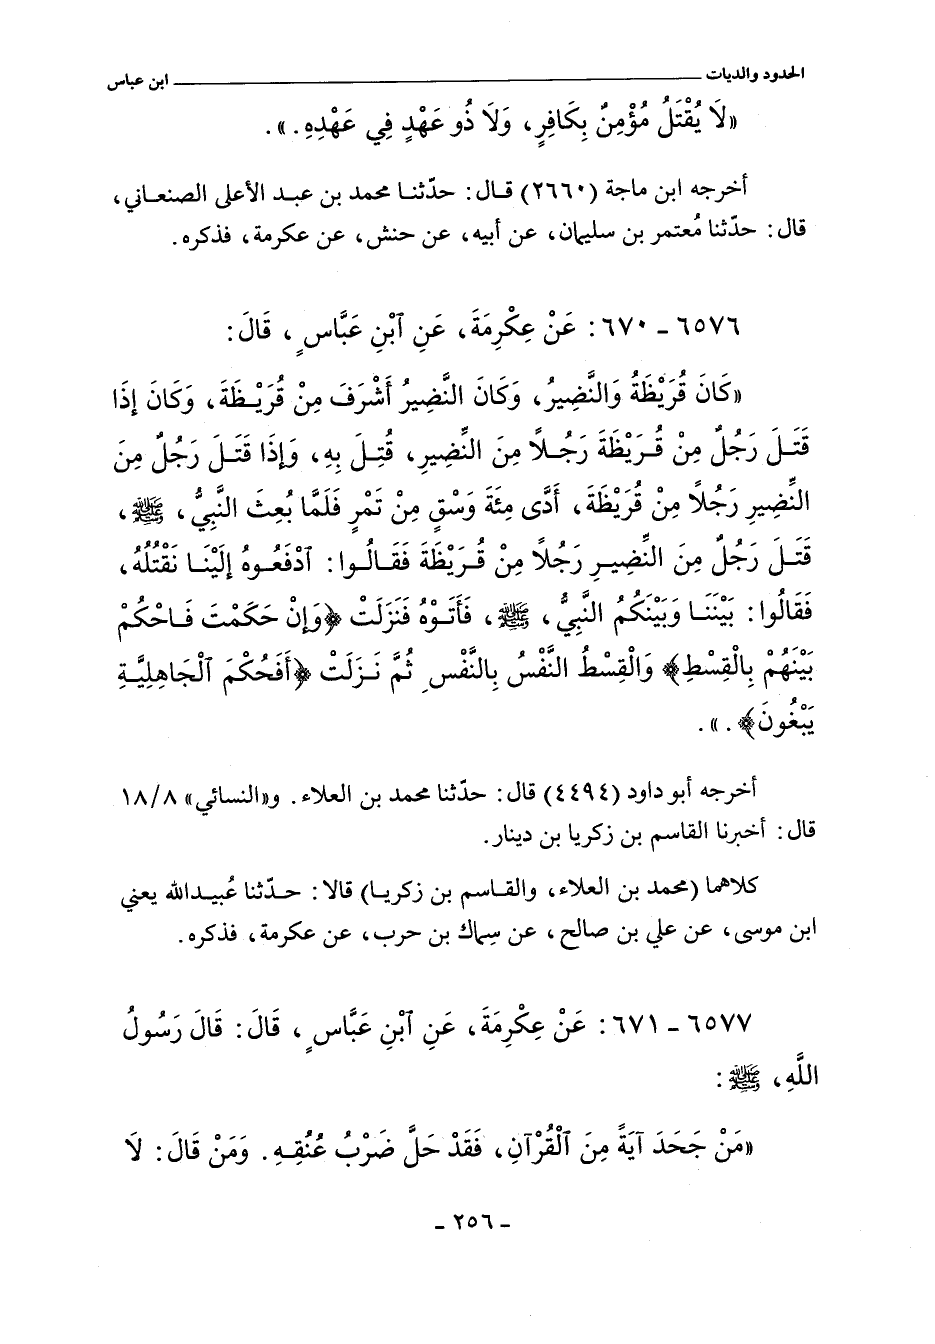 الحدود والديات ــــــــــــــــــــ ابن عباس
«لَا يُقْتَلُ مُؤْمِنٌ بِكَافِرٍ، وَلَا ذُو عَهْدٍ فِي عَهْدِهِ.».
أخرجه ابن ماجة (٢٦٦٠) قال: حدّثنا محمد بن عبد الأعلى الصنعاني،
قال: حدّثنا مُعتمر بن سليمان، عن أبيه، عن حنش، عن عكرمة، فذكره.
٦٥٧٦ - ٦٧٠: عَنْ عِكْرِمَةَ، عَنِ ٱبْنِ عَبَّاسٍ، قَالَ:
«كَانَ قُرَيْظَةُ وَالنَّضِيرُ، وَكَانَ النَّضِيرُ أَشْرَفَ مِنْ قُرَيْظَةَ، وَكَانَ إِذَا
قَتَلَ رَجُلٌ مِنْ قُرَيْظَةَ رَجُلًا مِنَ النَّضِيرِ، قُتِلَ بِهِ، وَإِذَا قَتَلَ رَجُلٌ مِنَ
النَّضِيرِ رَجُلًا مِنْ قُرَيْظَةَ، أَدَّى مِئَةَ وَسْقٍ مِنْ تَمْرٍ فَلَمَّا بُعِثَ النَّبِيُّ، ﷺ،
قَتَلَ رَجُلٌ مِنَ النَّضِيرِ رَجُلًا مِنْ قُرَيْظَةَ فَقَالُوا: ٱدْفَعُوهُ إِلَيْنَا نَقْتُلْهُ،
فَقَالُوا: بَيْنَنَا وَبَيْنَكُمُ النَّبِيُّ، ﷺ، فَأَتَوْهُ فَنَزَلَتْ ﴿وَإِنْ حَكَمْتَ فَاحْكُمْ
بَيْنَهُمْ بِالْقِسْطِ﴾ وَالْقِسْطُ النَّفْسُ بِالنَّفْسِ ثُمَّ نَزَلَتْ ﴿أَفَحُكْمَ ٱلْجَاهِلِيَّةِ
يَبْغُونَ﴾.».
أخرجه أبو داود (٤٤٩٤) قال: حدّثنا محمد بن العلاء. و«النسائي» ١٨/٨
قال: أخبرنا القاسم بن زكريا بن دينار.
كلاهما (محمد بن العلاء، والقاسم بن زكريا) قالا: حدّثنا عُبيدالله يعني
ابن موسى، عن علي بن صالح، عن سِماك بن حرب، عن عكرمة، فذكره.
٦٥٧٧ - ٦٧١: عَنْ عِكْرِمَةَ، عَنِ ٱبْنِ عَبَّاسٍ، قَالَ: قَالَ رَسُولُ
اللَّهِ، ﷺ:
«مَنْ جَحَدَ آيَةً مِنَ ٱلْقُرْآنِ، فَقَدْ حَلَّ ضَرْبُ عُنُقِهِ. وَمَنْ قَالَ: لَا
- ٢٥٦ -